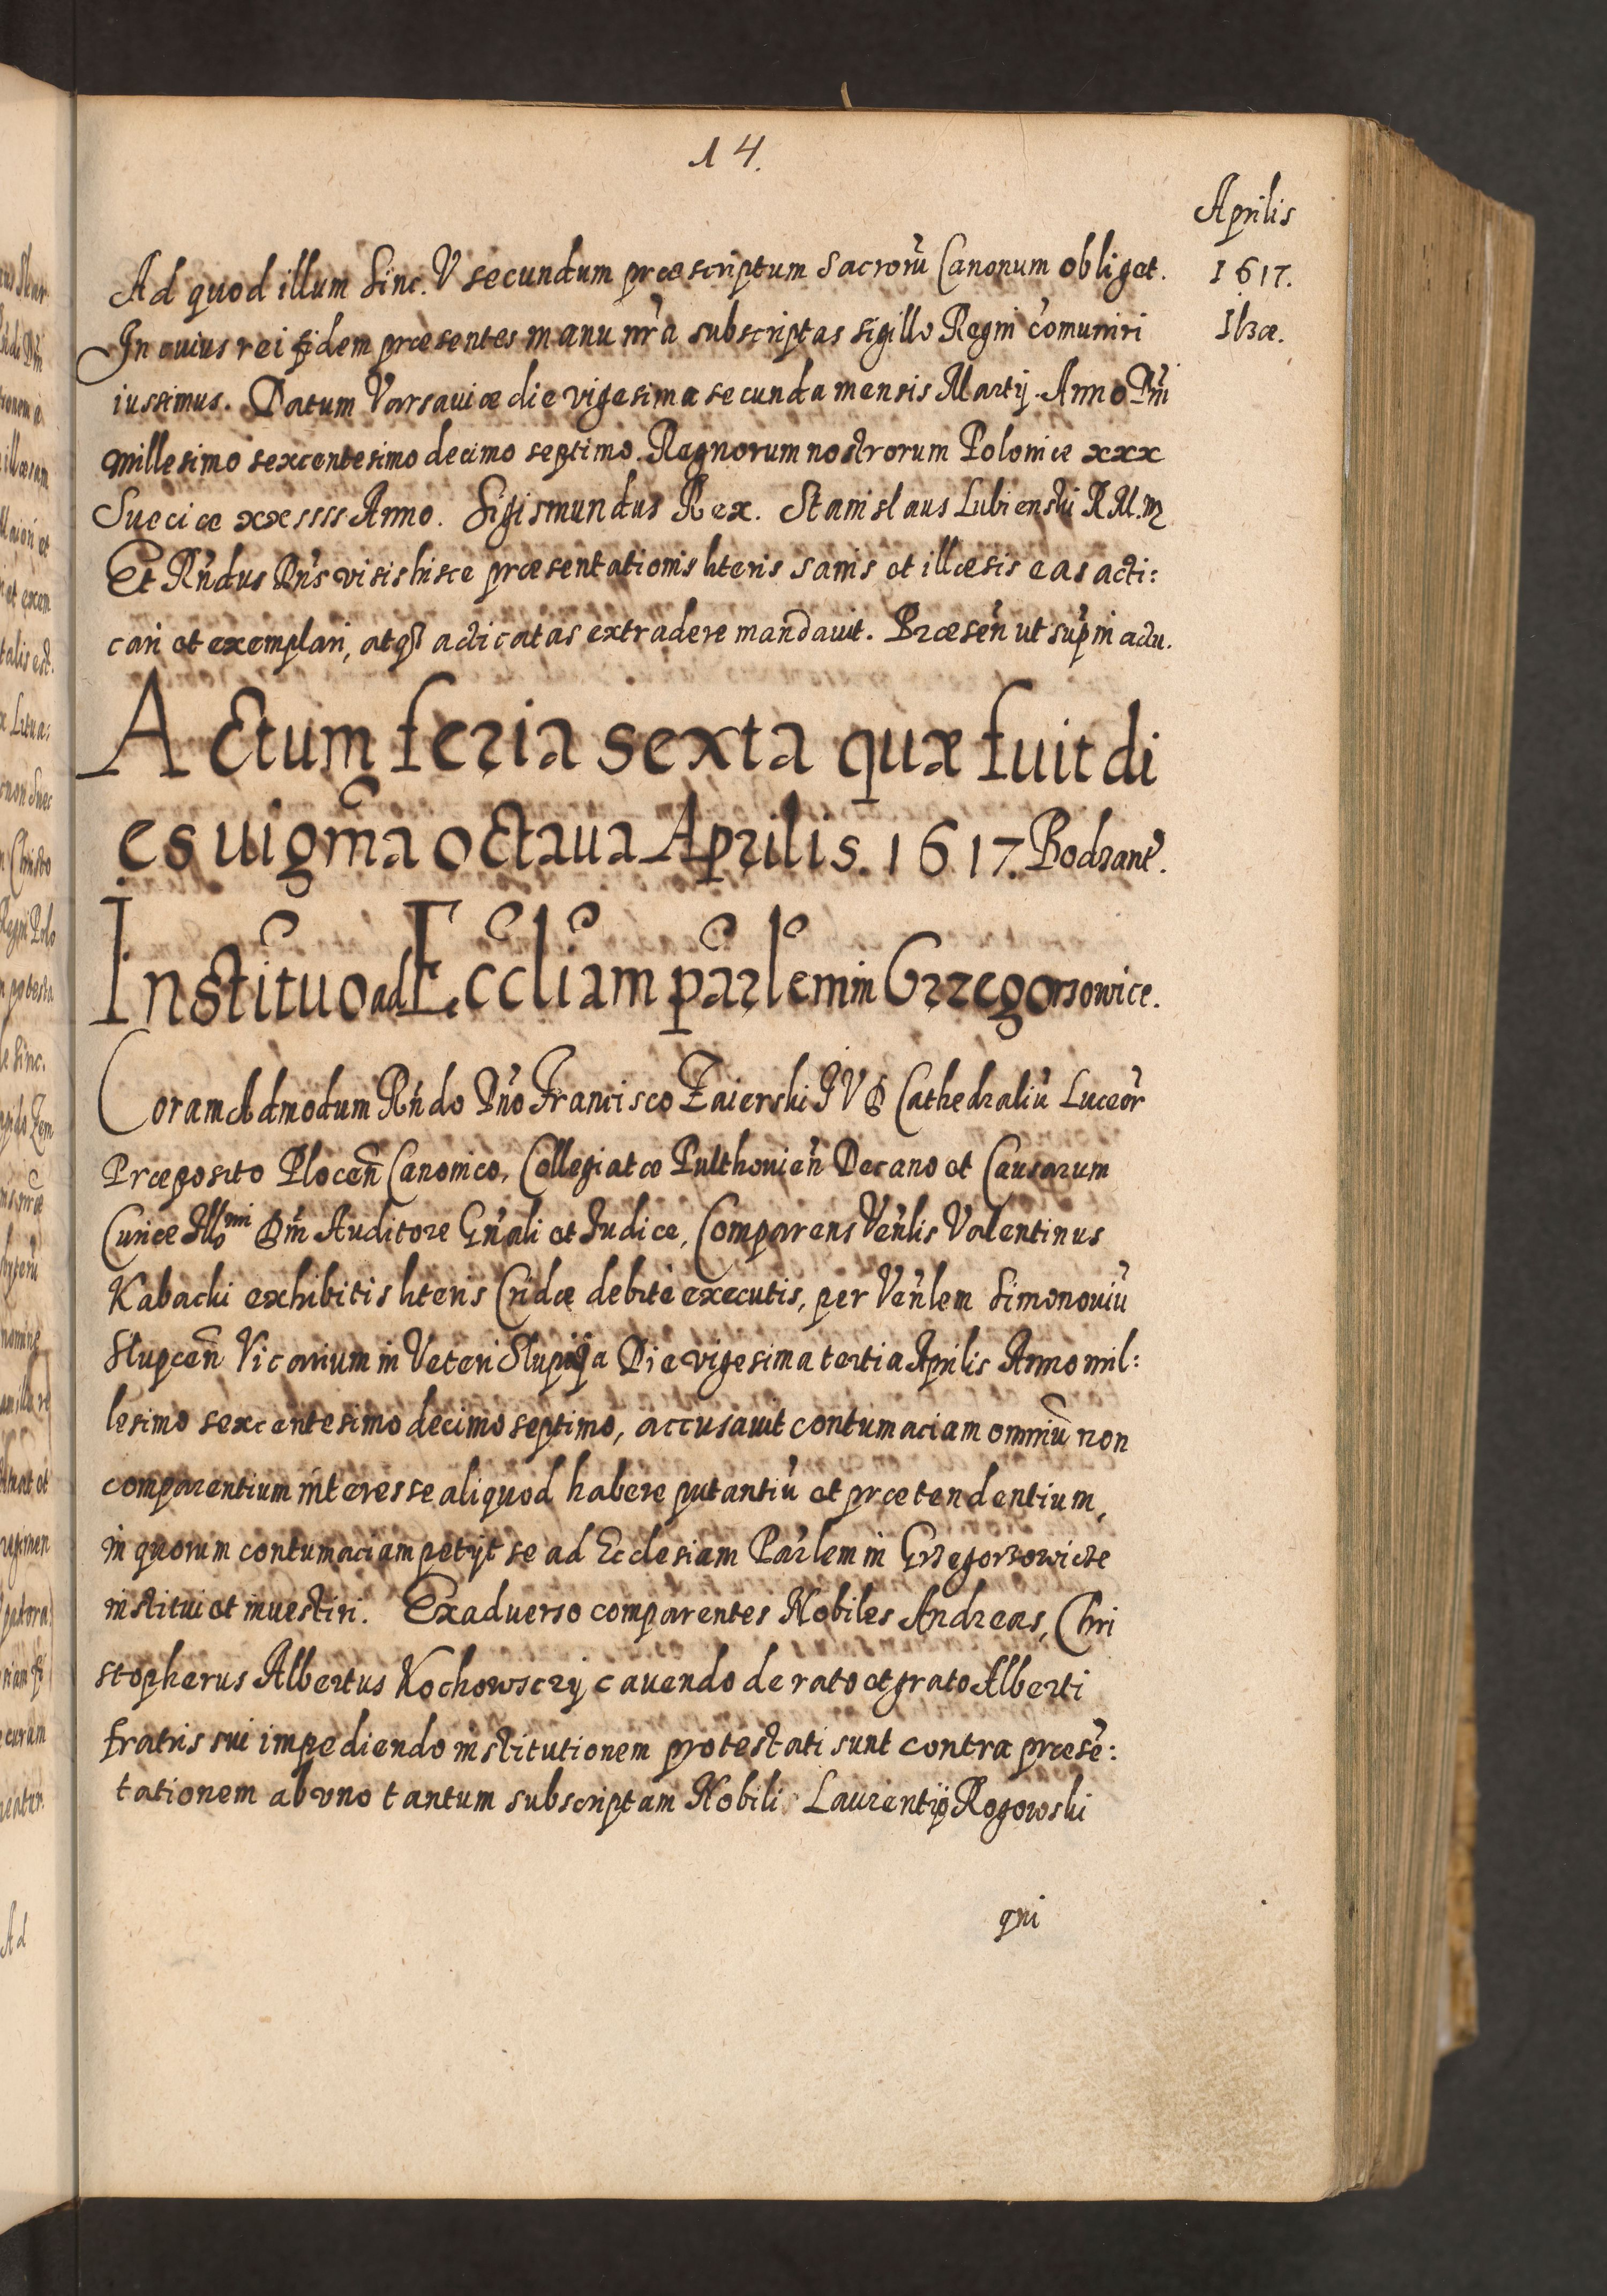 14.
Aprilis
1617.
Ilzæ.
Ad quod illum Sinc. V secundum præscriptum Sacrorũ Canonum obligat.
In cuius rei fidem præsentes manu nr̃a subscriptas sigillo Regni cõmuniri
iussimus. Datum Varsauiæ die vigesima secunda mensis Martij Anno Dñi
millesimo sexcentesimo decimo septimo. Regnorum nostrorum Poloniæ xxx
Sueciæ xxssss Anno. Sigismundus Rex. Stanislaus Lubienski R M.
Et Rñdus Dñs visis hisce præsentationis lteris sanis et illæsis eas acti:
cari et exemplari, atq3 acticatas extradere mandauit. Præseñ ut sup̃ in actu.
Actum feria sexta quæ fuit di
es uigm̃a octaua Aprilis. 1617. Bodzant̃.
Institũo ad Eccl̃iam par̃lem in Grzegorzowice.
Coram Admodum Rñdo Dño Francisco Zaierski I V D Cathedraliũ Luceor̃
Præposito Ploceñ Canonico, Collegiatæ Pulthouień Decano et Causarum
Curiæ Illmi Dñi Auditore Gñali et Iudice, Comparens Veñlis Valentinus
Kabacki exhibitis lteris Cridæ debitè executis, per Veñlem Simonouiũ
Slupceñ Vicarium in Veteri Slupija Die vigesima tertia Aprilis Anno mil:
lesimo sexcentesimo decimo septimo, accusauit contumaciam omniũ non
comparentium interesse aliquod habere putantiũ et prætendentium,
in quorum contumaciam petijt se ad Ecclesiam Par̃lem in Grzegorzowicze
institui et inuestiri. Exaduerso comparentes Nobiles Andreas, Chri
stopherus Albertus Kochowsczij cauendo de rato et grato Alberti
fratris sui impediendo institutionem protestati sunt contra præsẽ:
tationem ab vno tantum subscriptam Nobili Laurentij Rogowski
qui